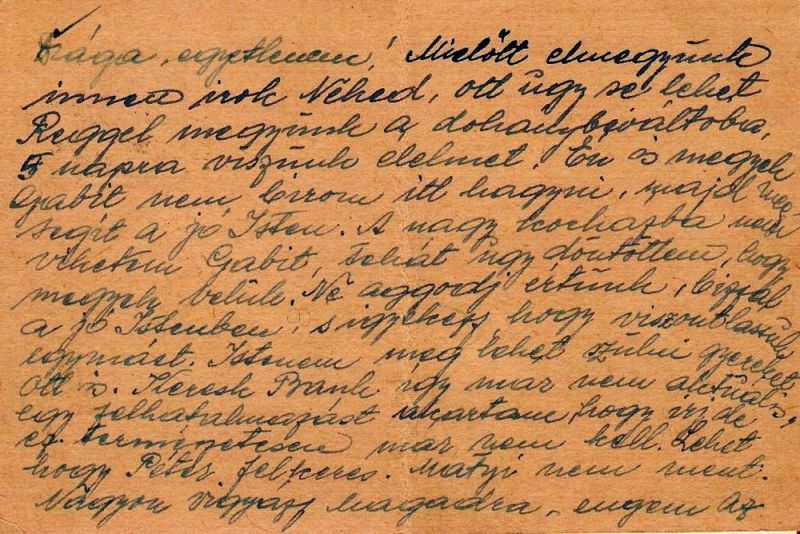 Drága, egyetlenem! Mielőtt elmegyünk
innen irok Neked, ott úgy se lehet
Reggel megyünk a dohánybeváltoba,
5 napra viszünk élelmet. Én is megyek
Gabit nem birom itt hagyni, majd meg
segit a jó Isten. A nagy kocházba nem
vihetem Gabit, tehát úgy döntöttem, hogy
megyek velük. Ne aggodj értünk, bizzál
a jó Istenben, s igyekezz, hogy viszontlássuk
egymást. Istenem meg lehet szülni gyereket
ott is. Keresk Bank úgy mar nem aktuális,
egy felhatalmazást akartam, hogy irj de
ez természetesen mar nem kell. Lehet
hogy Péter felkeres. Matyi nem ment.
Nagyon vigyázz magadra, engem az